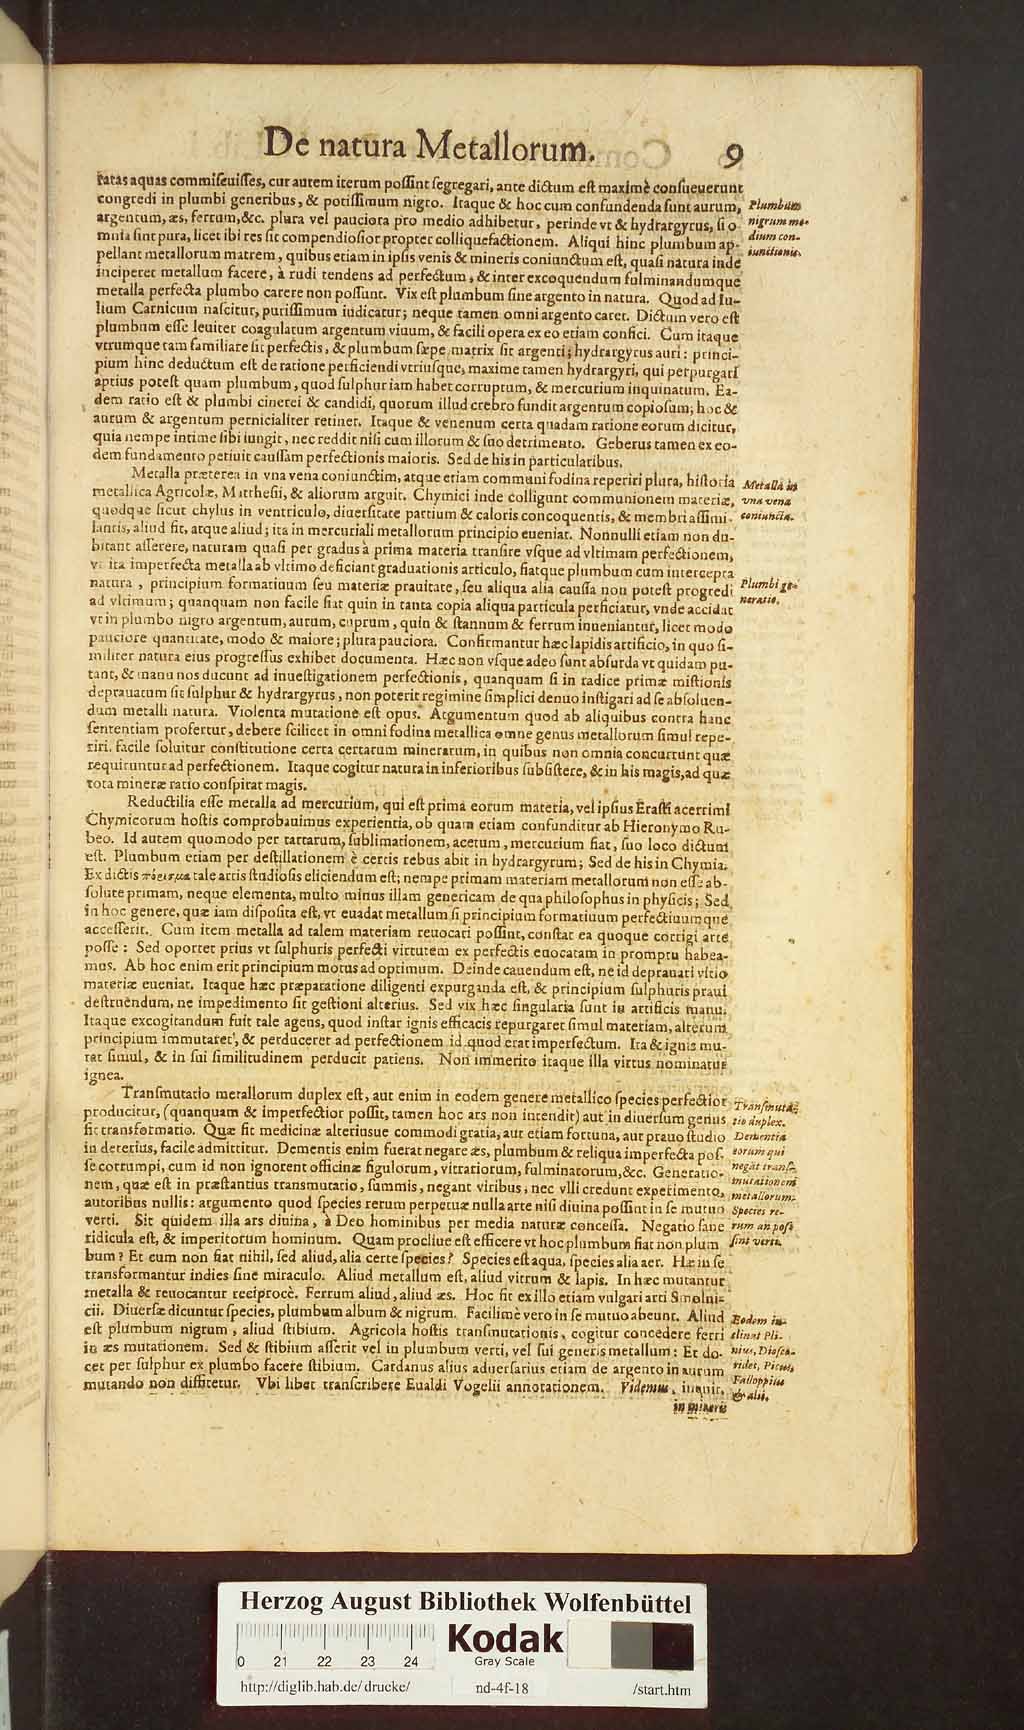 De natura Metallorum. 9
ratas aquas commiſcuiſſes, cur autem iterum poſſint ſegregari, ante dictum eſt maximè conſueuerunt
congredi in plumbi generibus, & potiſſimum nigro. Itaque & hoc cum confundenda ſunt aurum,
argentum, æs, ferrum, &c. plura vel pauciora pro medio adhibetur, perinde vt & hydrargyrus, ſi o-
mnia ſint pura, licet ibi res ſit compendioſior propter colliquefactionem. Aliqui hinc plumbum ap-
pellant metallorum matrem, quibus etiam in ipſis venis & mineris coniunctum eſt, quaſi natura inde
inciperet metallum facere, à rudi tendens ad perfectum, & inter excoquendum fulminandumque
metalla perfecta plumbo carere non poſſunt. Vix eſt plumbum ſine argento in natura. Quod ad Iu-
lium Carnicum naſcitur, puriſſimum iudicatur; neque tamen omni argento caret. Dictum vero eſt
plumbum eſſe leuiter coagulatum argentum viuum, & facili opera ex eo etiam confici. Cum itaque
vtrumque tam familiare ſit perfectis, & plumbum ſæpe matrix ſit argenti; hydrargyrus auri: princi-
pium hinc deductum eſt de ratione perficiendi vtriuſque, maxime tamen hydrargyri, qui perpurgari
aptius poteſt quam plumbum, quod ſulphur iam habet corruptum, & mercurium inquinatum. Ea-
dem ratio eſt & plumbi cinerei & candidi, quorum illud crebro fundit argentum copioſum; hoc &
aurum & argentum pernicialiter retinet. Itaque & venenum certa quadam ratione eorum dicitur,
quia nempe intime ſibi iungit, nec reddit niſi cum illorum & ſuo detrimento. Geberus tamen ex eo-
dem fundamento petiuit cauſſam perfectionis maioris. Sed de his in particularibus.
Plumbum
nigrum me-
dium con-
iunctionis.
Metalla præterea in vna vena coniunctim, atque etiam communi fodina reperiri plura, hiſtoria
metallica Agricolæ, Mattheſii, & aliorum arguit. Chymici inde colligunt communionem materiæ,
quodque ſicut chylus in ventriculo, diuerſitate partium & caloris concoquentis, & membri aſſimi-
lantis, aliud fit, atque aliud; ita in mercuriali metallorum principio eueniat. Nonnulli etiam non du-
bitant aſſerere, naturam quaſi per gradus à prima materia tranſire vſque ad vltimam perfectionem,
vt ita imperfecta metalla ab vltimo deficiant graduationis articulo, fiatque plumbum cum intercepta
natura, principium formatiuum ſeu materiæ prauitate, ſeu aliqua alia cauſſa non poteſt progredi
ad vltimum; quanquam non facile fiat quin in tanta copia aliqua particula perficiatur, vnde accidat
vt in plumbo nigro argentum, aurum, cuprum, quin & ſtannum & ferrum inueniantur, licet modo
pauciore quantitate, modo & maiore; plura pauciora. Confirmantur hæc lapidis artificio, in quo ſi-
militer natura eius progreſſus exhibet documenta. Hæc non vſque adeo ſunt abſurda vt quidam pu-
tant, & manu nos ducunt ad inueſtigationem perfectionis, quanquam ſi in radice primæ miſtionis
deprauatum ſit ſulphur & hydrargyrus, non poterit regimine ſimplici denuo inſtigari ad ſe abſoluen-
dum metalli natura. Violenta mutatione eſt opus. Argumentum quod ab aliquibus contra hanc
ſententiam profertur, debere ſcilicet in omni fodina metallica omne genus metallorum ſimul repe-
riri. facile ſoluitur conſtitutione certa certarum minerarum, in quibus non omnia concurrunt quæ
requiruntur ad perfectionem. Itaque cogitur natura in inferioribus ſubſiſtere, & in his magis, ad quæ
tota mineræ ratio conſpirat magis.
Metalla in
vna vena
coniuncta.
Plumbi ge-
neratio.
Reductilia eſſe metalla ad mercurium, qui eſt prima eorum materia, vel ipſius Eraſti acerrimi
Chymicorum hoſtis comprobauimus experientia, ob quam etiam confunditur ab Hieronymo Ru-
beo. Id autem quomodo per tartarum, ſublimationem, acetum, mercurium fiat, ſuo loco dictum
eſt. Plumbum etiam per deſtillationem è certis rebus abit in hydrargyrum; Sed de his in Chymia.
Ex dictis πόρισμα tale artis ſtudioſis eliciendum eſt; nempe primam materiam metallorum non eſſe ab-
ſolute primam, neque elementa, multo minus illam genericam de qua philoſophus in phyſicis; Sed
in hoc genere, quæ iam diſpoſita eſt, vt euadat metallum ſi principium formatiuum perfectiuumque
acceſſerit. Cum item metalla ad talem materiam reuocari poſſint, conſtat ea quoque corrigi arte
poſſe: Sed oportet prius vt ſulphuris perfecti virtutem ex perfectis euocatam in promptu habea-
mus. Ab hoc enim erit principium motus ad optimum. Deinde cauendum eſt, ne id deprauati vitio
materiæ eueniat. Itaque hæc præparatione diligenti expurganda eſt, & principium ſulphuris praui
deſtruendum, ne impedimento ſit geſtioni alterius. Sed vix hæc ſingularia ſunt in artificis manu.
Itaque excogitandum fuit tale agens, quod inſtar ignis efficacis repurgaret ſimul materiam, alterum
principium immutaret, & perduceret ad perfectionem id quod erat imperfectum. Ita & ignis mu-
tat ſimul, & in ſui ſimilitudinem perducit patiens. Non immerito itaque illa virtus nominatur
ignea.
Tranſmutatio metallorum duplex eſt, aut enim in eodem genere metallico ſpecies perfectior
producitur, (quanquam & imperfectior poſſit, tamen hoc ars non intendit) aut in diuerſum genus
fit transformatio. Quæ fit medicinæ alteriusue commodi gratia, aut etiam fortuna, aut prauo ſtudio
in deterius, facile admittitur. Dementis enim fuerat negare æs, plumbum & reliqua imperfecta poſ-
ſe corrumpi, cum id non ignorent officinæ figulorum, vitrariorum, fulminatorum, &c. Generatio-
nem, quæ eſt in præſtantius tranſmutatio, ſummis, negant viribus, nec vlli credunt experimento,
autoribus nullis: argumento quod ſpecies rerum perpetuæ nulla arte niſi diuina poſſint in ſe mutuo
verti. Sit quidem illa ars diuina, à Deo hominibus per media naturæ conceſſa. Negatio ſane
ridicula eſt, & imperitorum hominum. Quam procliue eſt efficere vt hoc plumbum fiat non plum
bum? Et cum non fiat nihil, ſed aliud, alia certe ſpecies? Species eſt aqua, ſpecies alia aer. Hæ in ſe
transformantur indies ſine miraculo. Aliud metallum eſt, aliud vitrum & lapis. In hæc mutantur
metalla & reuocantur reciprocè. Ferrum aliud, aliud æs. Hoc fit ex illo etiam vulgari arti Smolni-
cii. Diuerſæ dicuntur ſpecies, plumbum album & nigrum. Facilimè vero in ſe mutuo abeunt. Aliud
eſt plumbum nigrum, aliud ſtibium. Agricola hoſtis tranſmutationis, cogitur concedere ferri
in æs mutationem. Sed & ſtibium aſſerit vel in plumbum verti, vel ſui generis metallum: Et do-
cet per ſulphur ex plumbo facere ſtibium. Cardanus alius aduerſarius etiam de argento in aurum
mutando non diffitetur. Vbi libet tranſcribere Eualdi Vogelii annotationem. Videmus, inquit,
in mineris
Tranſmuta-
tio duplex.
Dementia
eorum qui
negãt tranſ-
mutationem
metallorum.
Species re-
rum an poſ-
ſint verti.
Eodem in-
clinat Pli-
nius, Dioſco-
rides, Picus,
Falloppius
& alii.
Herzog August Bibliothek Wolfenbüttel
0 21 22 23 24
Kodak
Gray Scale
http://diglib.hab.de/drucke/ nd-4f-18 /start.htm